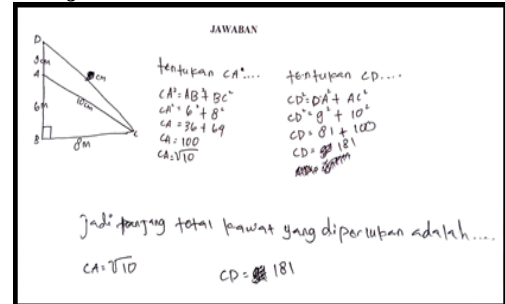 JAWABAN
D
3cm
A
cm
10cm
6m
B
8m
C
tentukan CA....
CA² = AB² + BC²
CA² = 6² + 8²
CA = 36 + 64
CA = 100
CA = √10
tentukan CD....
CD² = DA² + AC²
CD² = 9² + 10²
CD = 81 + 100
CD = 181
Jadi panjang total kawat yang diperlukan adalah....
CA = √10
CD = 181